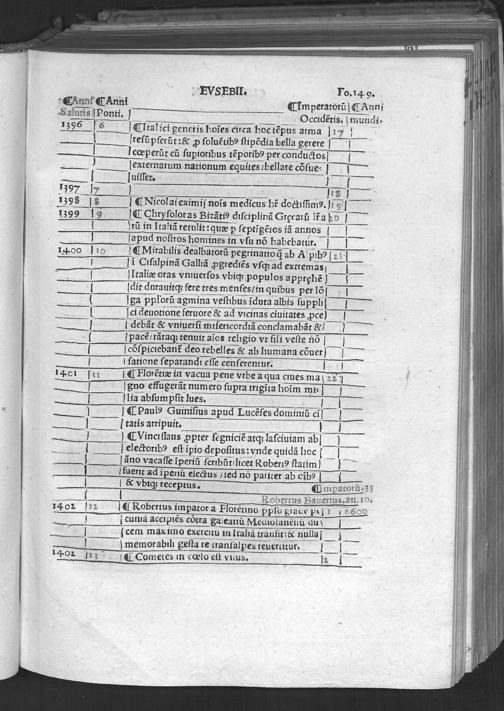 EVSEBII. Fo.149.
¶Anni ¶Anni ¶Imperatorũ ¶Anni
Salutis Ponti. Occidẽtis. mundi.
1396 6 ¶Italici generis hoĩes circa hoc tẽpus arma 17
resũpserũt: & ꝓ soluẽtibꝰ stipẽdia bella gerere
cœperũt cũ supioribus tẽporibꝰ per conductos
externarum nationum equites: bellare cõsue-
uisset.
1397 7 18
1398 8 ¶Nicolai eximij nois medicus hr̃ doctissimꝰ. 19
1399 9 ¶Chrysoloras Bizãtiꝰ disciplinã Græcarũ lr̃a 20
rũ in Italiã retulit: quæ p septigẽtos iã annos
apud nostros homines in vsu nõ habebatur.
1400 10 ¶Mirabilis dealbatorũ pegrinatio q̃ ab Alpibꝰ 21
ĩ Cisalpinã Galliã ꝓgrediẽs vsq; ad extremas
Italiæ oras vniuersos vbiq; populos apprehẽ
dit durauitq; fere tres menses: in quibus per lõ
ga ppl̃orũ agmina vestibus ĩduta albis suppli
ci deuotione feruore & ad vicinas ciuitates ꝓce
debãt & vniuersi misericordiã conclamabãt &
pacẽ: tãtaq; tenuit aĩos religio vt si ſi veste nõ
cõspiciebant̃ deo rebelles & ab humana cõuer
satione separandi esse censerentur.
1401 11 ¶Florẽtiæ in vacua pene vrbe a qua ciues ma 22
gno effugerãt numero supra trigĩta hoĩm mi-
lia absumpsit lues.
¶Paulꝰ Guinisius apud Lucẽses dominiũ ci
tatis arripuit.
¶Vincislaus ꝓpter segniciẽ atq; lasciuiam ab
electoribꝰ est ĩpio depositus: vnde quidã hoc
ãno vacasse ĩperiũ scribũt: licet Robertꝰ statim
fuerit ad ĩperiũ electus / sed nõ pariter ab oĩbꝰ
& vbiq; receptus. ¶Impatorũ. 33
Robertus Bauerius. an. 10.
1402 12 ¶Robertus impator a Florẽtino ppl̃o grãde pe 1 6600
cuniã accipiẽs cõtra galeatiũ Mediolanẽsiũ du
cem maximo exercitu in Italiã transiit: & nulla
memorabili gesta re transalpes reuertitur.
1402 13 ¶Cometes in cœlo est visus. 2